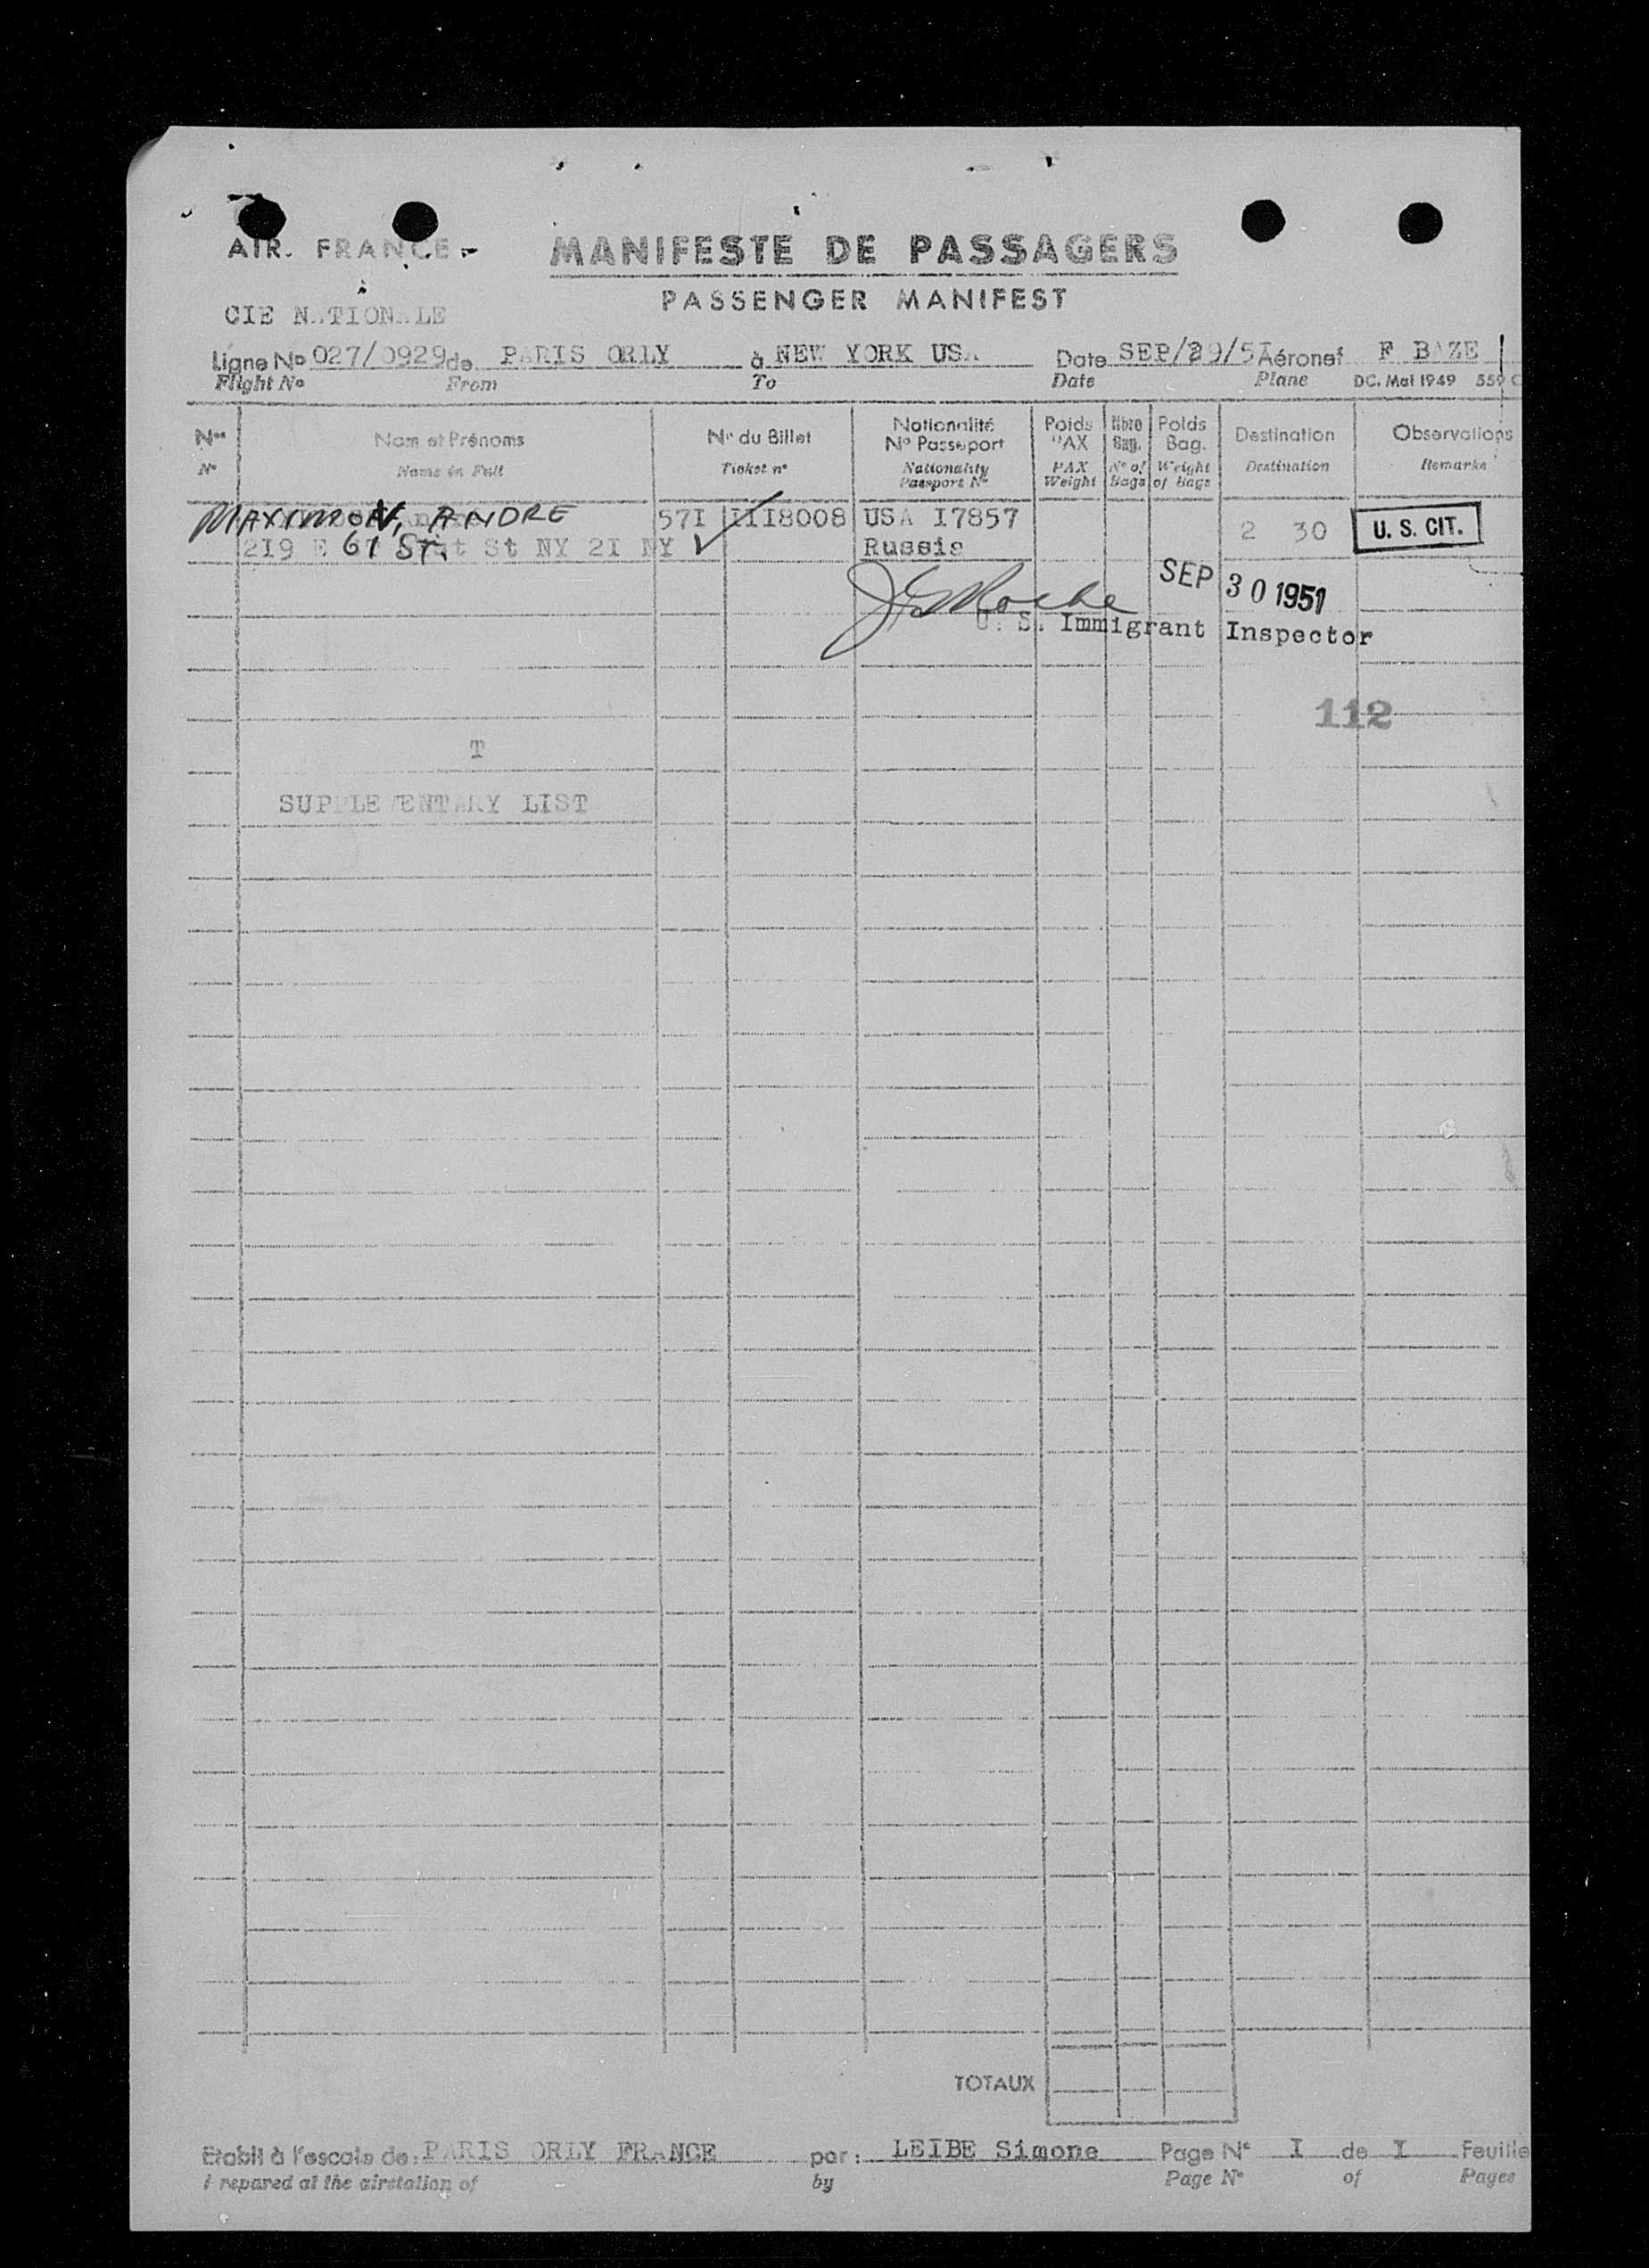 AIR FRANCE
MANIFESTE DE PASSAGERS
PASSENGER MANIFEST
CIE NATIONALE
Ligne No 027/0929 de PARIS ORLY à NEW YORK USA Date SEP/29/5I Aéronef F BAZE
Flight No From To Date Plane DC. Mai 1949 559
Nos Nom et Prénoms No du Billet Nationalité No Passeport Poids PAX Nbre Bag. Poids Bag. Destination Observations
No Name in Full Ticket no Nationality Passport No PAX Weight No of Bags Weight of Bags Destination Remarks
MAXIMON, ANDRE 57I III8008 USA I7857 2 30 U. S. CIT.
2I9 E 61 St. St NY 2I NY Russia
SEP 30 1951
U. S. Immigrant Inspector
112
T
SUPPLEMENTARY LIST
TOTAUX
Etabli à l'escale de: PARIS ORLY FRANCE par: LEIBE Simone Page No I de I Feuille
Prepared at the airstation of by Page No of Pages